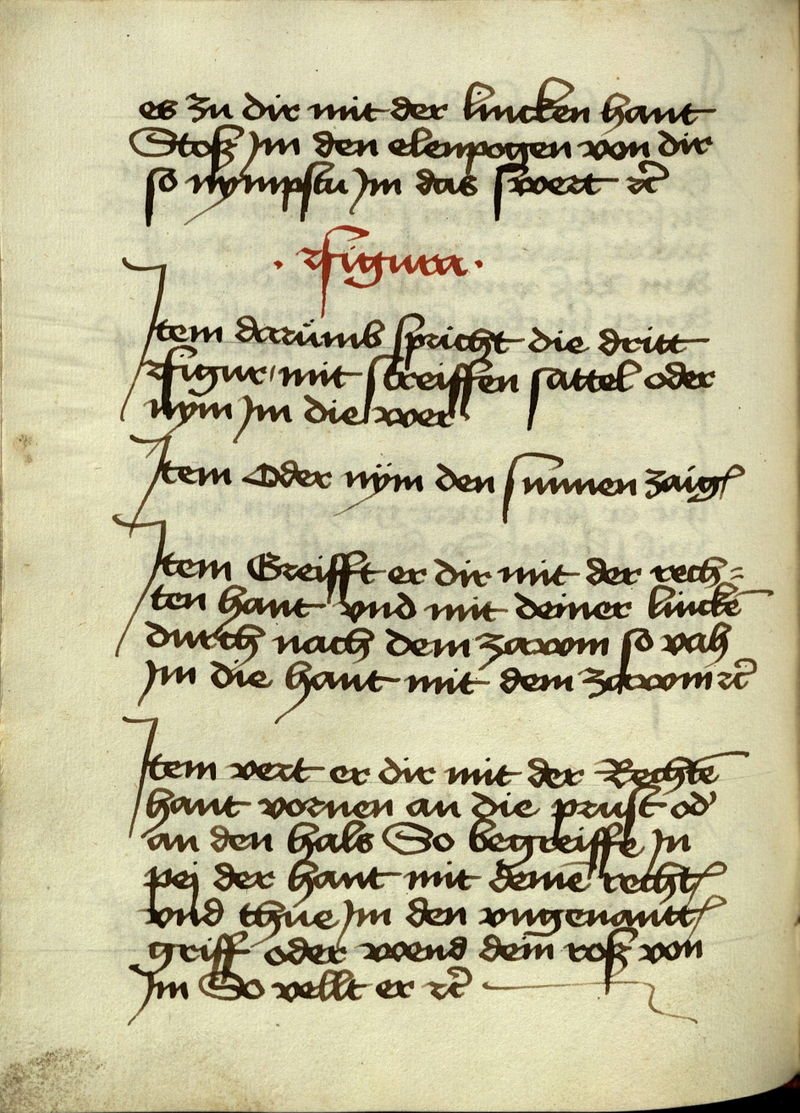 es zu dir mit der lincken hant
Stoß Im den elenpogen von dir
so nympstu Im das swert ꝛc̃
· Figura ·
Item darümb spricht die dritt
Figur mit streiffen sattel oder
nym Im die wer
Item Oder nÿm den sinnen zaigꝭ
Item Greifft er dir mit der rech⸗
ten hant vnd mit deiner linckē
durch nach dem zawm so vah
Im die hant mit dem zawm ꝛc̃
Item vert er dir mit der Rechtē
hant vornen an die prust od̓
an den hals So begreiffe In
pej der hant mit deinē rechtꝭ
vnd thue Im den vngenanttꝭ
griff oder wend dein roß von
Im So vellt er ꝛc̃